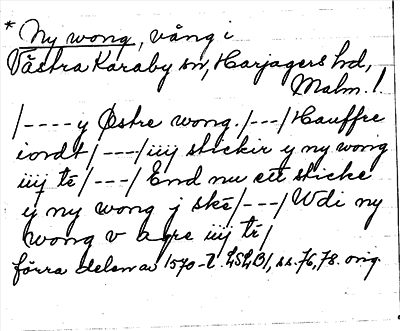 * Ny wong, vång i
Västra Karaby sn, Harjagers hd,
Malm. l.
/----y Østre wong./---/Hauffre
iordt/---/iiij stickir y ny wong
iiij të/---/End nu ett sticke
y ny wong j ské/---/Wdi ny
wong v agre iiij të/
förra delen av 1570-t. LSLB1, ss. 76, 78. orig.